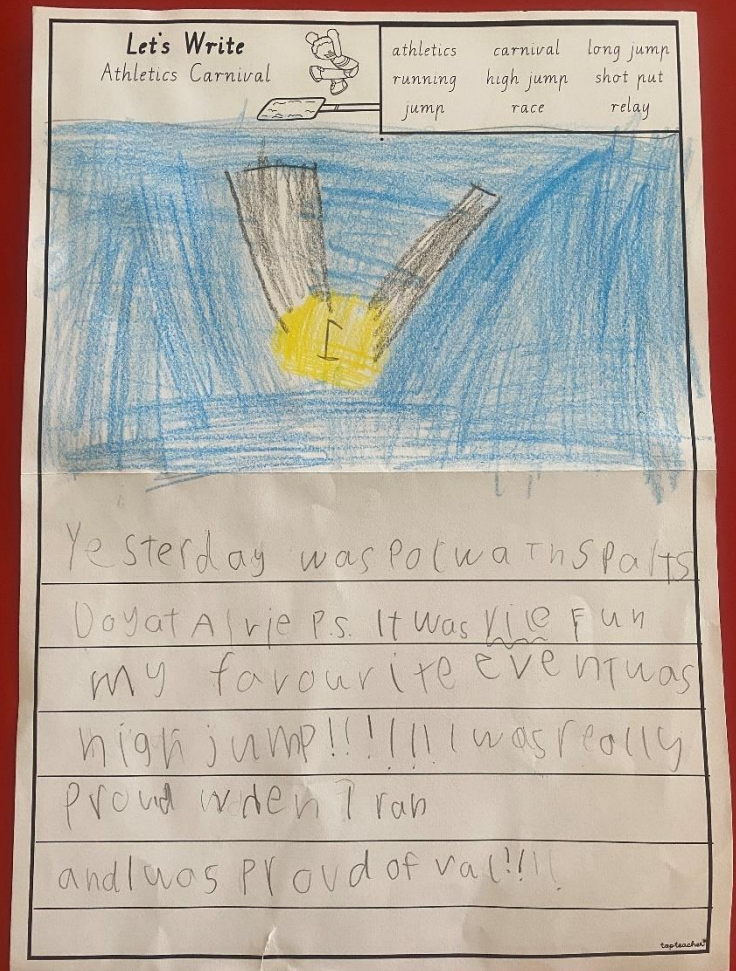 Let's Write
Athletics Carnival
athletics carnival long jump
running high jump shot put
jump race relay
I
Yesterday was Polwa Ths Palts
Doyat Alrie P.S. It was rile Fun
my favourite event was
high jump!!!!!!! I was really
Proud when I ran
and I was Proud of val!!!!
topteacher